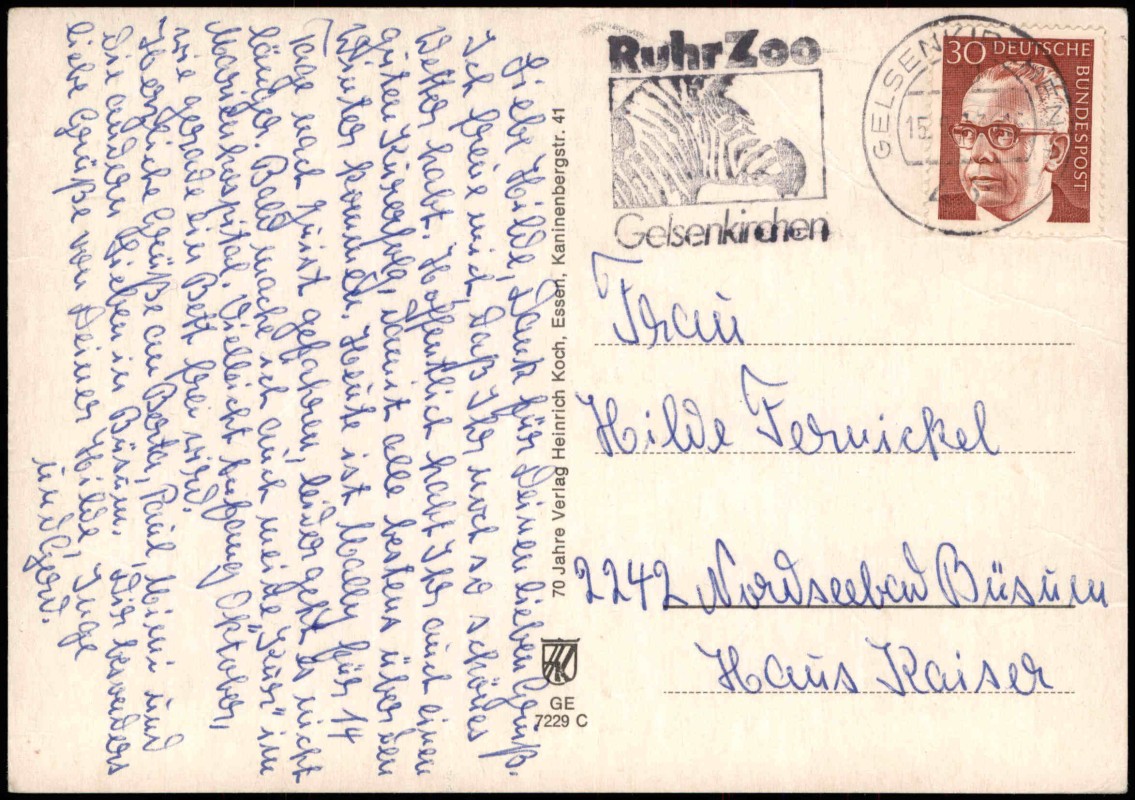 Liebe Hilde, Dank für Deinen lieben Gruß.
Ich freue mich, daß Ihr noch so schönes
Wetter habt. Hoffentlich habt Ihr auch einen
guten Kurerfolg, damit alle bestens über den
Winter kommen. Heute ist Mally für 14
Tage nach Juist gefahren, leider geht es nicht
länger. Bald mache ich auch meine "Kur" im
Marienhospital. Vielleicht Anfang Oktober,
wie gerade ein Bett frei wird.
Herzliche Grüße an Berta, Paul, Mimi und
die andern Lieben in Büsum. Dir besonders
liebe Grüße von Deiner Hilde, Inge
und Gerd.
70 Jahre Verlag Heinrich Koch, Essen, Kaninenbergstr. 41
GE
7229 C
RuhrZoo
Gelsenkirchen
GELSENKIRCHEN
30 DEUTSCHE BUNDESPOST
Frau
Hilde Fernickel
2242 Nordseebad Büsum
Haus Kaiser